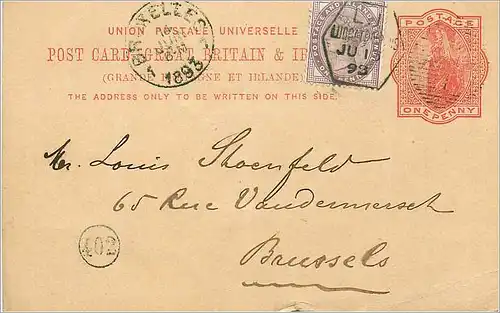 UNION POSTALE UNIVERSELLE
POST CARD GREAT BRITAIN &
(GRANDE ET IRLANDE)
THE ADDRESS ONLY TO BE WRITTEN ON THIS SIDE.
BRUXELLES
1893
POSTAGE AND
L
JU 1
93
POSTAGE
ONE PENNY
Mr. Louis Shoenfeld
65 Rue Vandermersch
Brussels
402